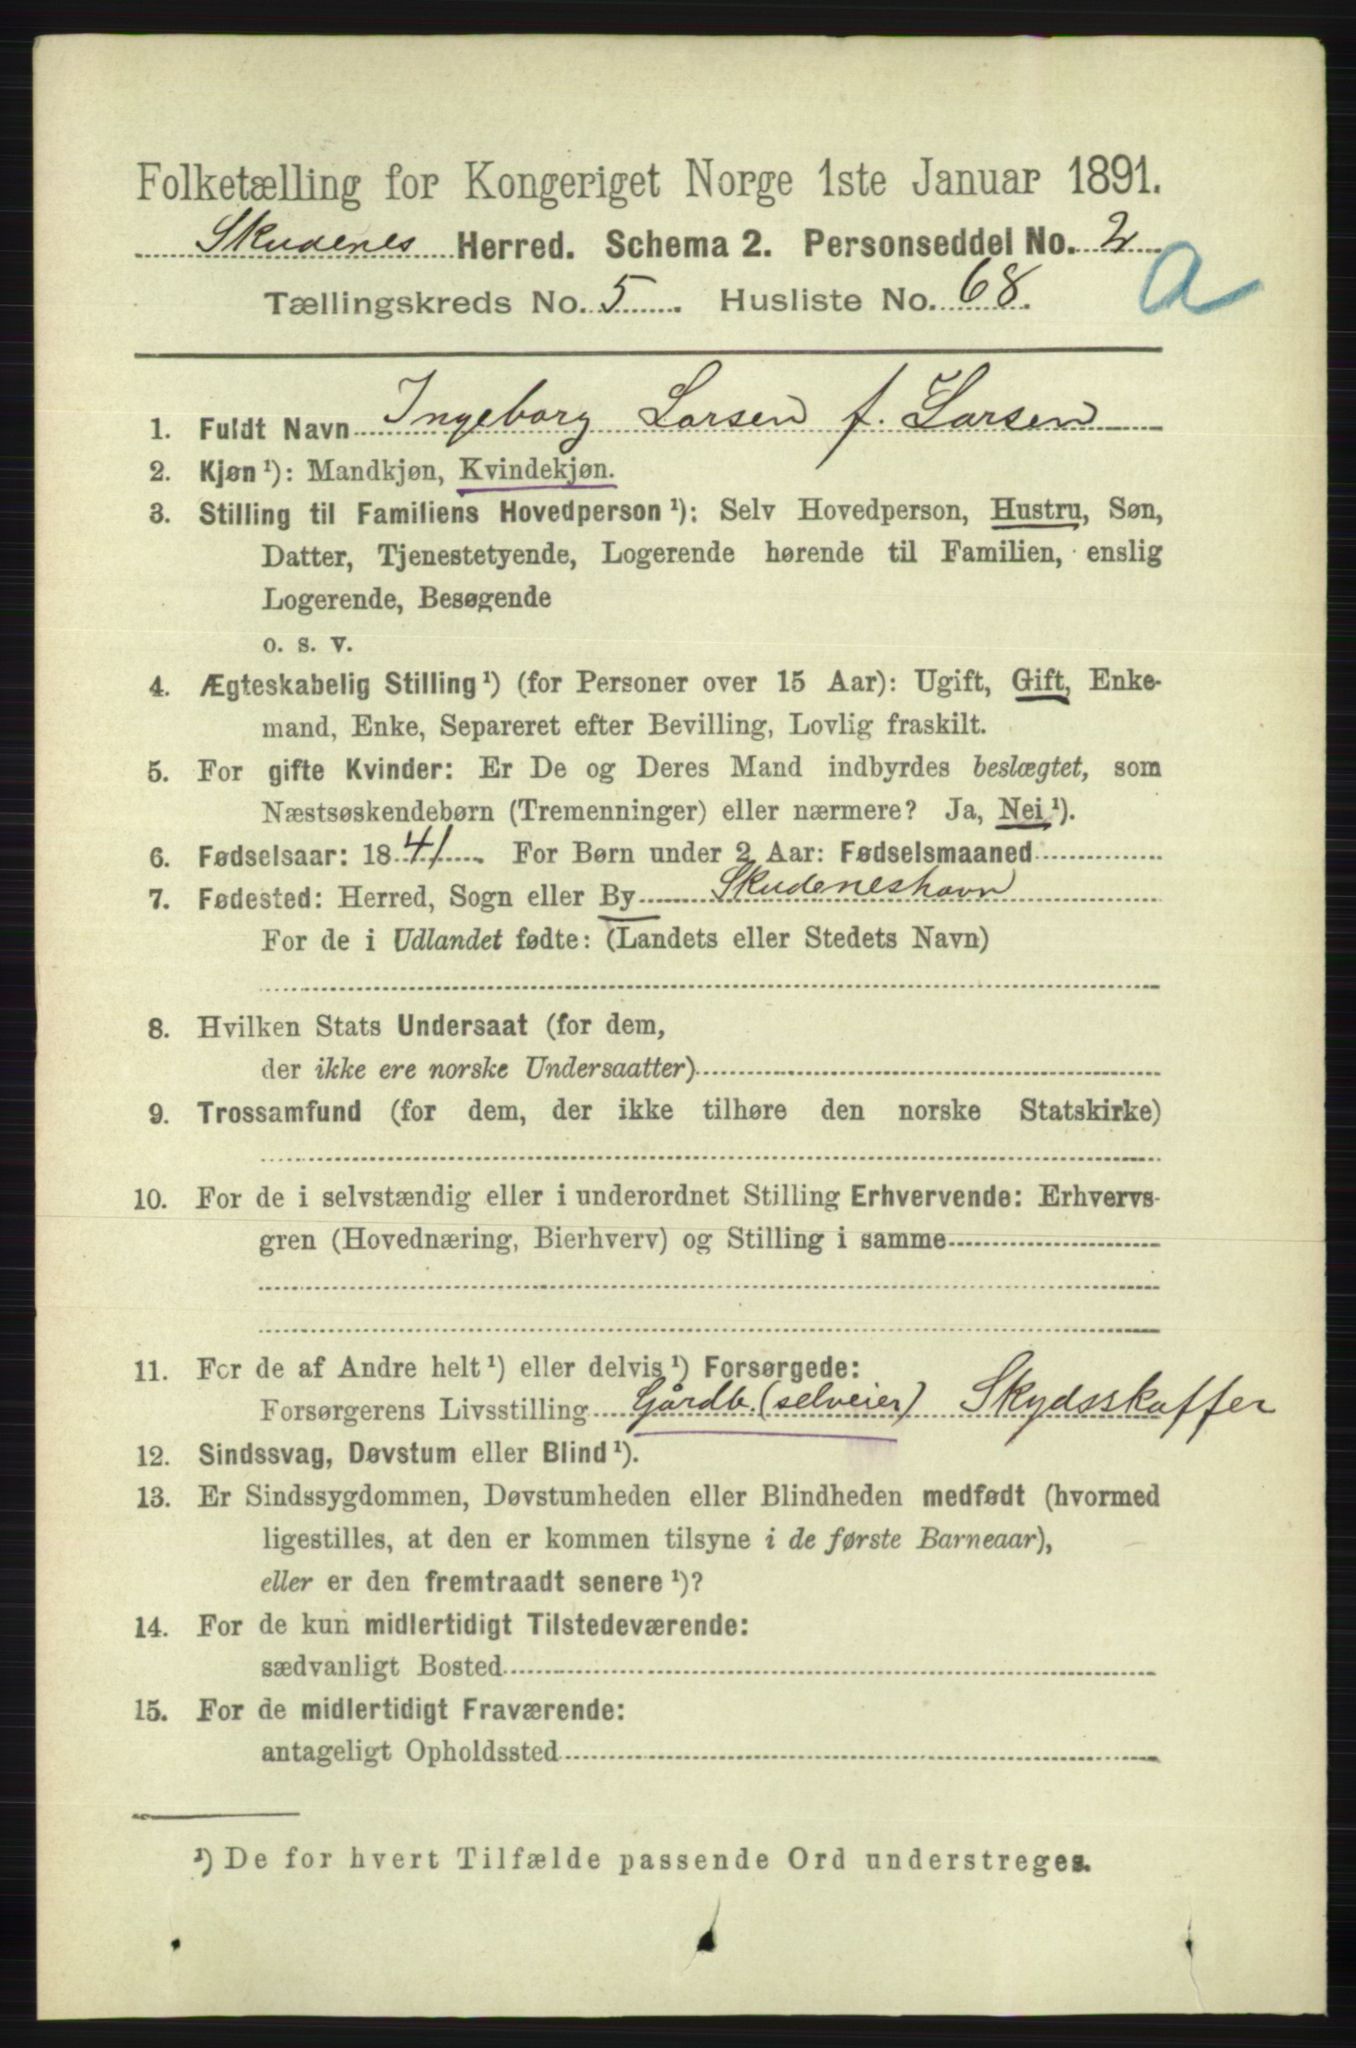 Folketælling for Kongeriget Norge 1ste Januar 1891.
Skudenes Herred. Schema 2. Personseddel No. 2
a
Tællingskreds No. 5. Husliste No. 68.
1. Fuldt Navn Ingeborg Larsen f. Larsen
2. Kjøn ¹): Mandkjøn, Kvindekjøn.
3. Stilling til Familiens Hovedperson ¹): Selv Hovedperson, Hustru, Søn,
Datter, Tjenestetyende, Logerende hørende til Familien, enslig
Logerende, Besøgende
o. s. v.
4. Ægteskabelig Stilling ¹) (for Personer over 15 Aar): Ugift, Gift, Enke-
mand, Enke, Separeret efter Bevilling, Lovlig fraskilt.
5. For gifte Kvinder: Er De og Deres Mand indbyrdes beslægtet, som
Næstsøskendebørn (Tremenninger) eller nærmere? Ja, Nei ¹).
6. Fødselsaar: 1841. For Børn under 2 Aar: Fødselsmaaned
7. Fødested: Herred, Sogn eller By Skudeneshavn
For de i Udlandet fødte: (Landets eller Stedets Navn)
8. Hvilken Stats Undersaat (for dem,
der ikke ere norske Undersaatter)
9. Trossamfund (for dem, der ikke tilhøre den norske Statskirke)
10. For de i selvstændig eller i underordnet Stilling Erhvervende: Erhvervs-
gren (Hovednæring, Bierhverv) og Stilling i samme
11. For de af Andre helt ¹) eller delvis ¹) Forsørgede:
Forsørgerens Livsstilling Gårdb. (selveier) Skydsskaffer
12. Sindssvag, Døvstum eller Blind ¹).
13. Er Sindssygdommen, Døvstumheden eller Blindheden medfødt (hvormed
ligestilles, at den er kommen tilsyne i de første Barneaar),
eller er den fremtraadt senere ¹)?
14. For de kun midlertidigt Tilstedeværende:
sædvanligt Bosted
15. For de midlertidigt Fraværende:
antageligt Opholdssted
¹) De for hvert Tilfælde passende Ord understreges.